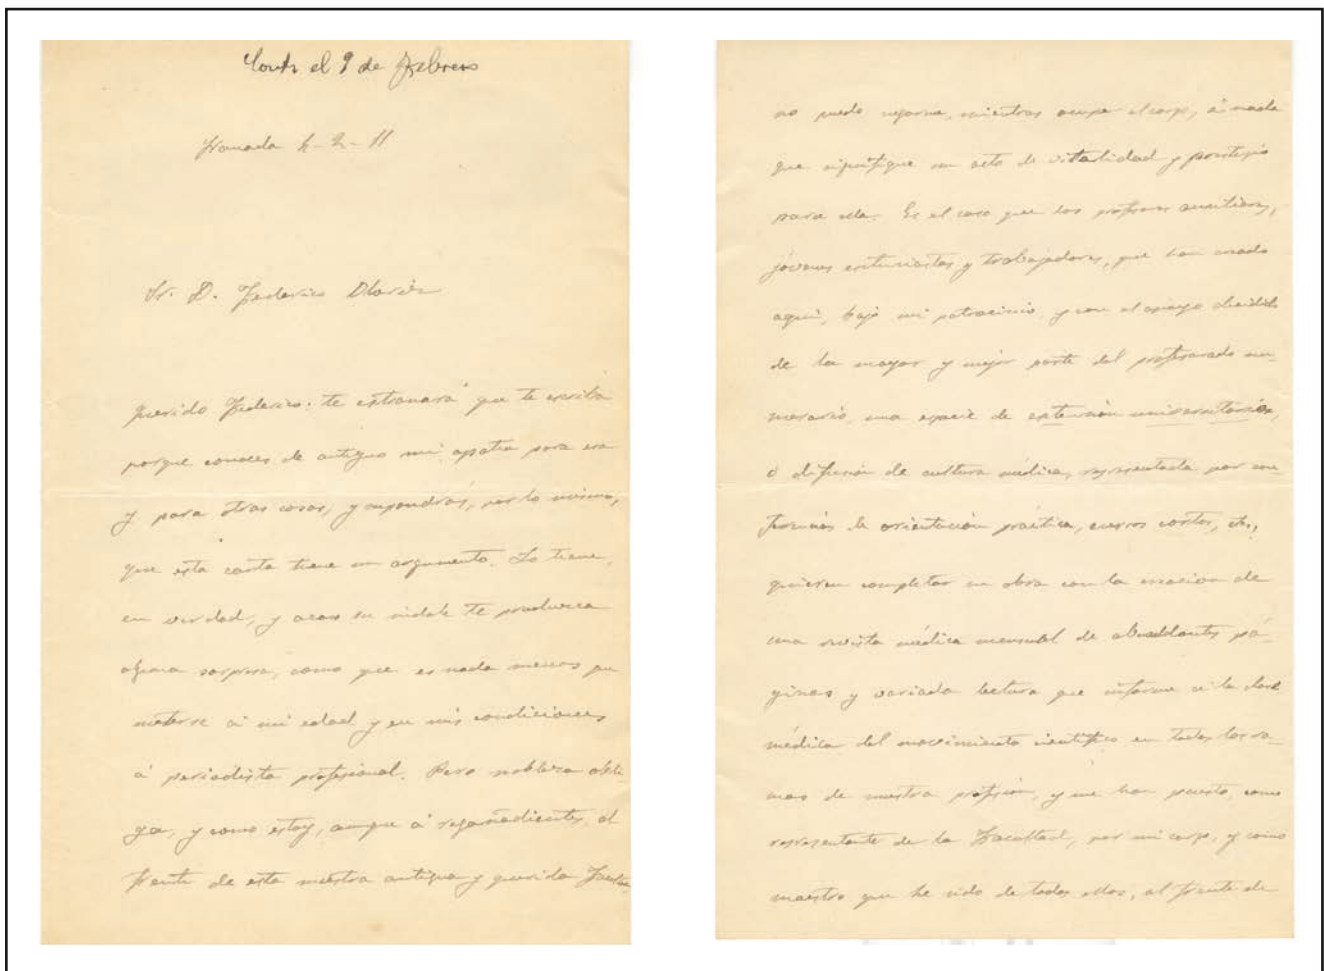 Contdo el 9 de Febrero
Granada 4-2-11
Sr. D. Federico Oloriz
Querido Federico: te extrañará que te escriba
porque conoces de antiguo mi apatia para esa
y para otras cosas, y supondrás, por lo mismo,
que esta carta tiene un argumento. Lo tiene,
en verdad, y acaso su indole te produzca
alguna sorpresa, como que es nada menos que
meterse á mi edad y en mis condiciones
á periodista profesional. Pero nobleza obli-
ga, y como estoy, aunque á regañadientes, al
frente de esta nuestra antigua y querida Facultad
no puedo negarme, mientras ocupe el cargo, á nada
que signifique un acto de vitalidad y prestigio
para ella. Es el caso que los profesores auxiliares,
jóvenes entusiastas y trabajadores, que han creado
aqui, bajo mi patrocinio, y con el apoyo decidido
de la mayor y mejor parte del profesorado nu-
merario, una especie de extensión universitaria,
ó difusión de cultura médica, representada por con
ferencias de orientación práctica, cursos cortos, etc.,
quieren completar su obra con la creacion de
una revista médica mensual de abundantes pá-
ginas y variada lectura que informe á la clase
médica del movimiento cientifico en todos los ra-
mos de nuestra profesión, y me han puesto, como
representante de la Facultad, por mi cargo, y como
maestro que he sido de todos ellos, al frente de